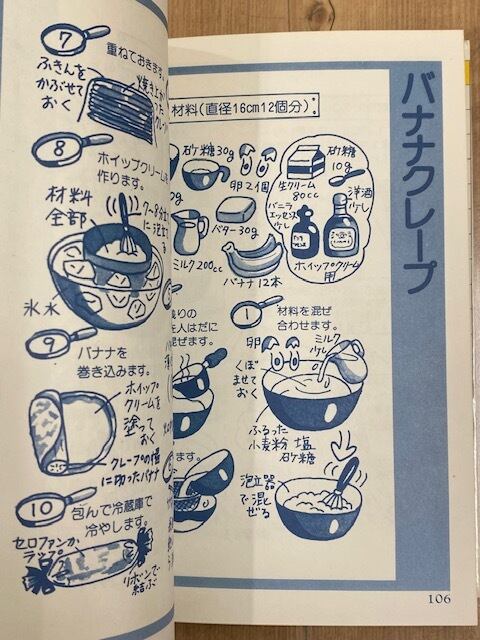 バナナクレープ
材料(直径16cm12個分)
砂糖30g
卵2個
生クリーム
80cc
砂糖
10g
洋酒
少し
バニラ
エッセンス
少し
ホイップクリーム
用
バター30g
ミルク200cc
バナナ12本
1
材料を混ぜ
合わせます。
卵
ミルク
少し
くぼ
ませて
おく
ふるった
小麦粉 塩
砂糖
泡立器
で混
ぜる
残りの
を人はだに
混ぜます。
ます。
106
7
重ねておきます。
ふきんを
かぶせて
おく
8
ホイップクリームを
作ります。
材料
全部
氷水
9
バナナを
巻き込みます。
ホイップ
クリームを
塗って
おく
クレープの幅
に切ったバナナ
10
包んで冷蔵庫で
冷やします。
セロファンか
ラップ
リボンで
結ぶ